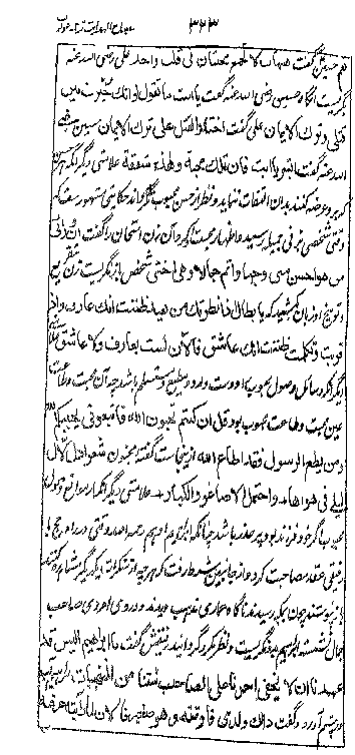 ۳۲۳
هم حسین گفت هیهات لا تجمع محبتان فی قلب واحد علی رضی الله عنه
بگریست آنگاه حسین رضی الله عنه گفت یا ابت ما تقول لو انک خیرت بین
قتلی و ترک الایمان علی گفت اختار القتل علی ترک الایمان حسین رضی
الله عنه گفت ابشر یا ابت فان تلک محبة و هذه شفقة علامتی دیگر آنکه هر حسن
که برو عرضه کنند بدان التفات ننماید و نظر از حسن محبوب نگرداند حکایتی مشهورست که
وقتی شخصی بر زنی جمیله رسید و اظهار محبت کرد آن زن امتحان را گفت ان ورائی
من هو احسن منی وجها و اتم جمالا و هی اختی شخص باز نگریست زن
و توبیخ او زبان بکشید که یا بطال اذا نظرتک من بعید ظننت انک عارف و اذا
قربت و تکلمت ظننت انک عاشق فالان لست بعارف و لا عاشق علامتی
دیگر آنکه وسائل وصول محبوب را دوست دارد و مطیع و مستسلم باشد چه آن محبت و طاعت
عین محبت و طاعت محبوب بود قل ان کنتم تحبون الله فاتبعونی یحببکم الله
و من یطع الرسول فقد اطاع الله از ینجاست گفته مجنون شعر اذل لآل
لیلی فی هواها و احتمل الاصاغر و الکبار علامتی دیگر آنکه از موانع وصول
محبوب اگر خود فرزند بود بر حذر باشد چنانکه ابراهیم ادهم رحمه الله را وقتی در راه حج با
رفیقی عقد مصاحبت کرد و از جانبین شرط رفت که هر چه از منکرات از یکدیگر مشاهده کنند
باز نپوشند چون بمکه رسیدند ناگاه عماری غریب دیدند و دروی امردی صاحب
جمال نشسته ابراهیم درو نگریست و نظر مکرر گردانید رفیقش گفت یا ابراهیم الیس قد
عهدنا ان لا یخفی احدنا علی الصاحب شیئا من المنهیات ابراهیم آب
در چشم آورد و گفت ذاک ولدی فارقته و هو صغیر فالان لما رأیته عرفته